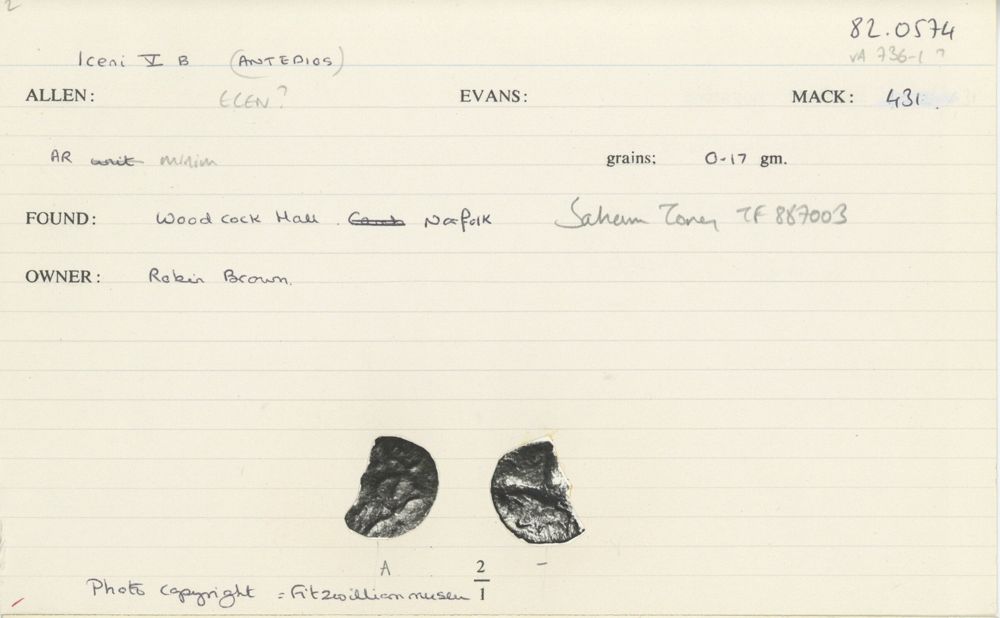 82.0574
Iceni V B (ANTEDIOS)
VA 736-1 ?
ALLEN: ECEN? EVANS: MACK: 431.
AR unit minim grains: 0.17 gm.
FOUND: Woodcock Hall. Norfolk Saham Toney TF 887003
OWNER: Robin Brown.
A 2/1 -
Photo copyright = Fitzwilliam museum